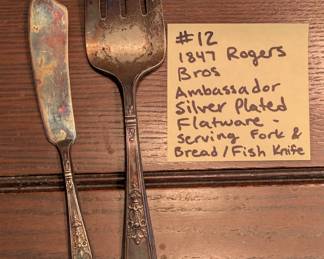 #12
1847 Rogers
Bros
Ambassador
Silver Plated
Flatware -
Serving Fork &
Bread/Fish Knife